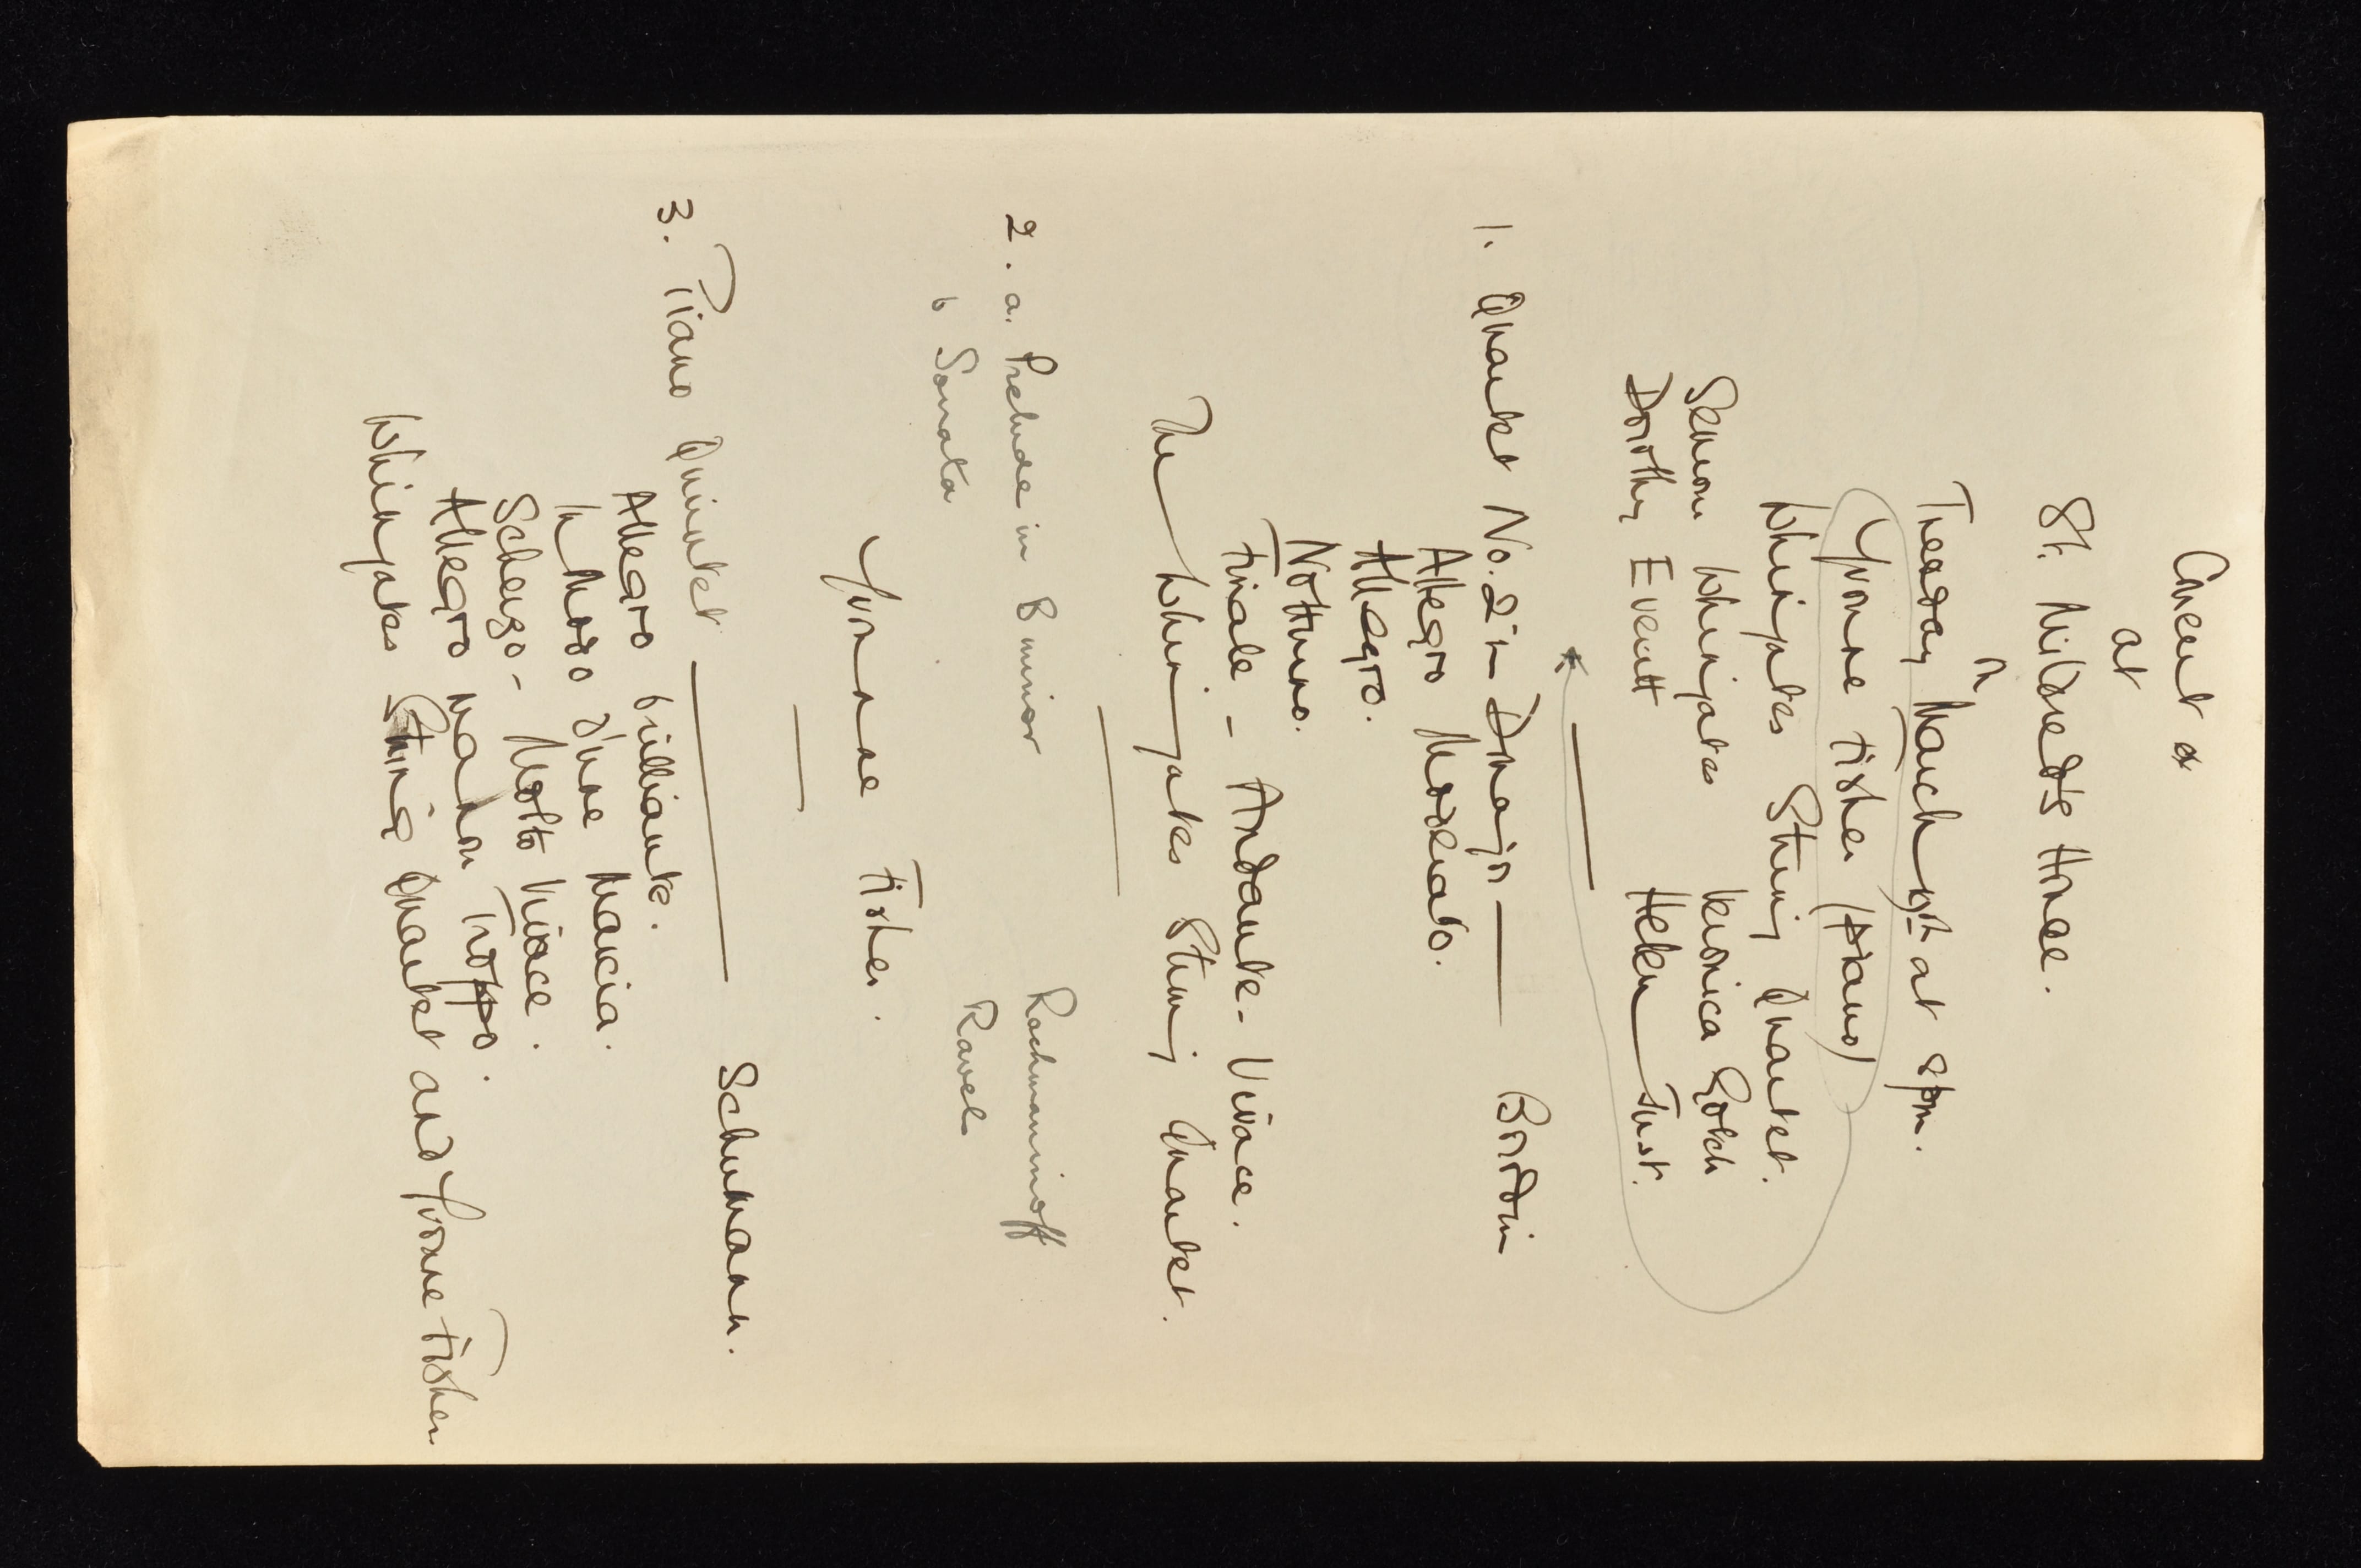 Concert
at
St. Mildred's House.
on
Tuesday March at 8pm.
Yvonne Fisher (Piano)
Whinyates String Quartet.
Seymour Whinyates Veronica Gotch
Dorothy Everitt Helen Just.
1. Quartet No. 2 in D major — Borodin
Allegro Moderato.
Allegro.
Notturno.
Finale - Andante - Vivace.
The Whinyates String Quartet.
2. a. Prelude in B minor Rachmaninoff
b Sonata Ravel
Yvonne Fisher.
3. Piano Quintet — Schumann.
Allegro brilliante.
In Modo d'une Marcia.
Scherzo - Molto Vivace.
Allegro ma non Troppo.
Whinyates String Quartet and Yvonne Fisher